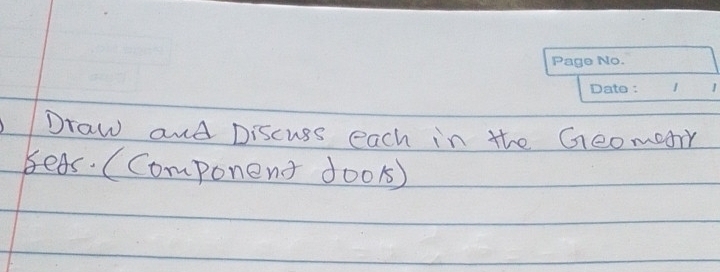 Page No.
Date : / /
Draw and Discuss each in the Geometry
sets. (Component tools)